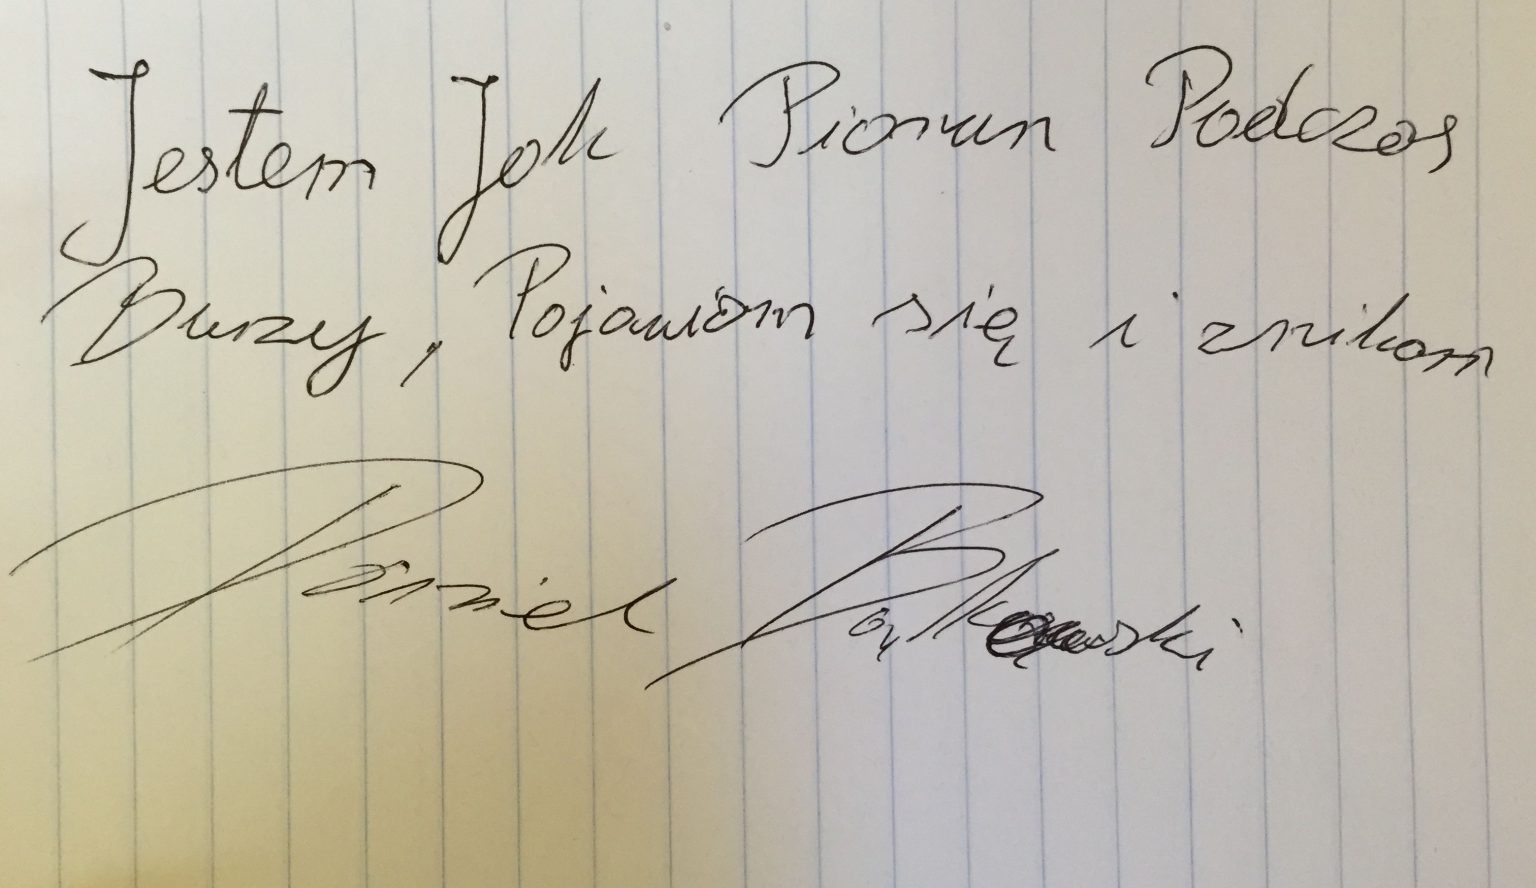 Jestem Jak Piorun Podczas
Burzy, Pojawiam się i znikam
Daniel Bąkowski